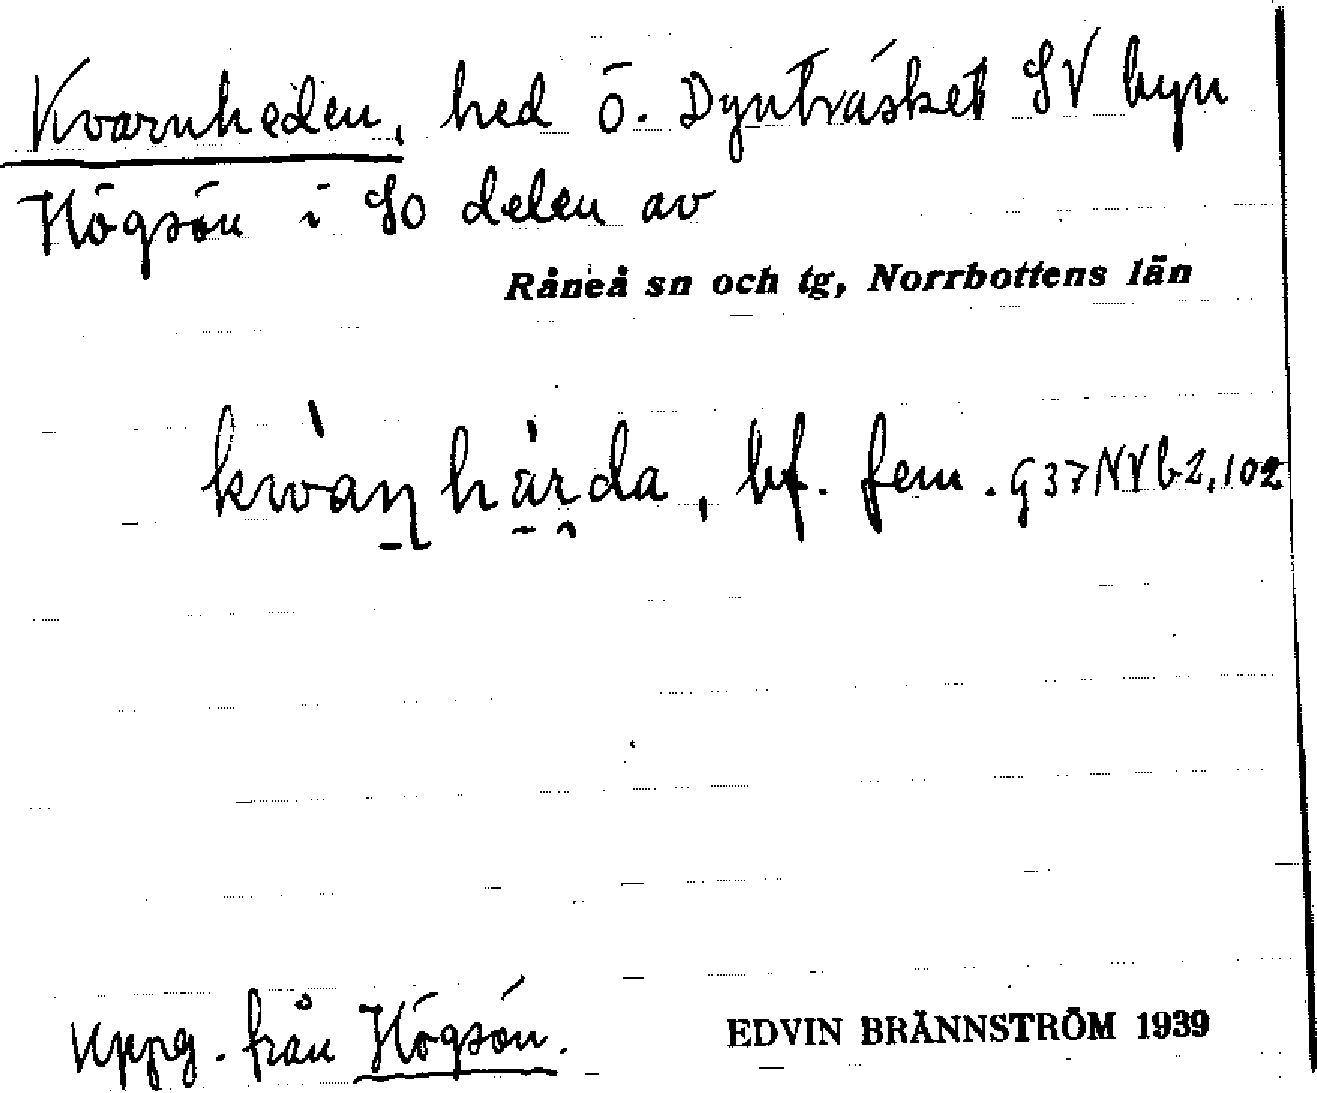 Kvarnheden, hed Ö. Dynträsket SV byn
Högsön i SO delen av
Råneå sn och tg, Norrbottens län
bf. fem. G37NVb2,102
Uppg. från Högsön.
EDVIN BRÄNNSTRÖM 1939